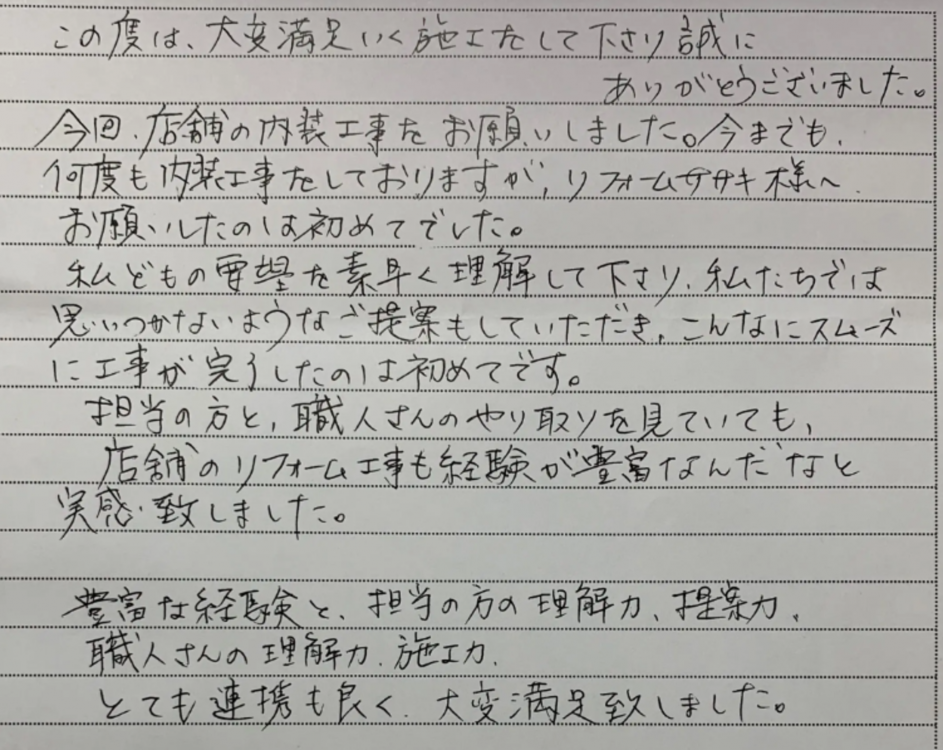 この度は、大変満足いく施工をして下さり誠に
ありがとうございました。
今回、店舗の内装工事をお願いしました。今までも、
何度も内装工事をしておりますが、リフォームササキ様へ
お願いしたのは初めてでした。
私どもの要望を素早く理解して下さり、私たちでは
思いつかないようなご提案もしていただき、こんなにスムーズ
に工事が完了したのは初めてです。
担当の方と、職人さんのやり取りを見ていても、
店舗のリフォーム工事も経験が豊富なんだなと
実感致しました。
豊富な経験と、担当の方の理解力、提案力、
職人さんの理解力、施工力、
とても連携も良く、大変満足致しました。